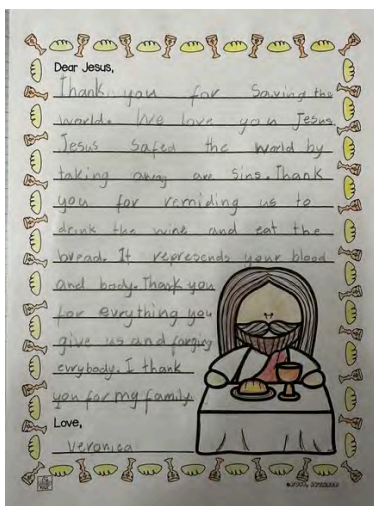 Dear Jesus,
Thank you for Saving the
world. We love you Jesus
Jesus Safed the world by
taking away are Sins. Thank
you for remiding us to
drink the wine and eat the
bread. It represends your blood
and body. Thank you
for evrything you
give us and forgivg
evrybody. I thank
you for my family.
Love,
Veronica